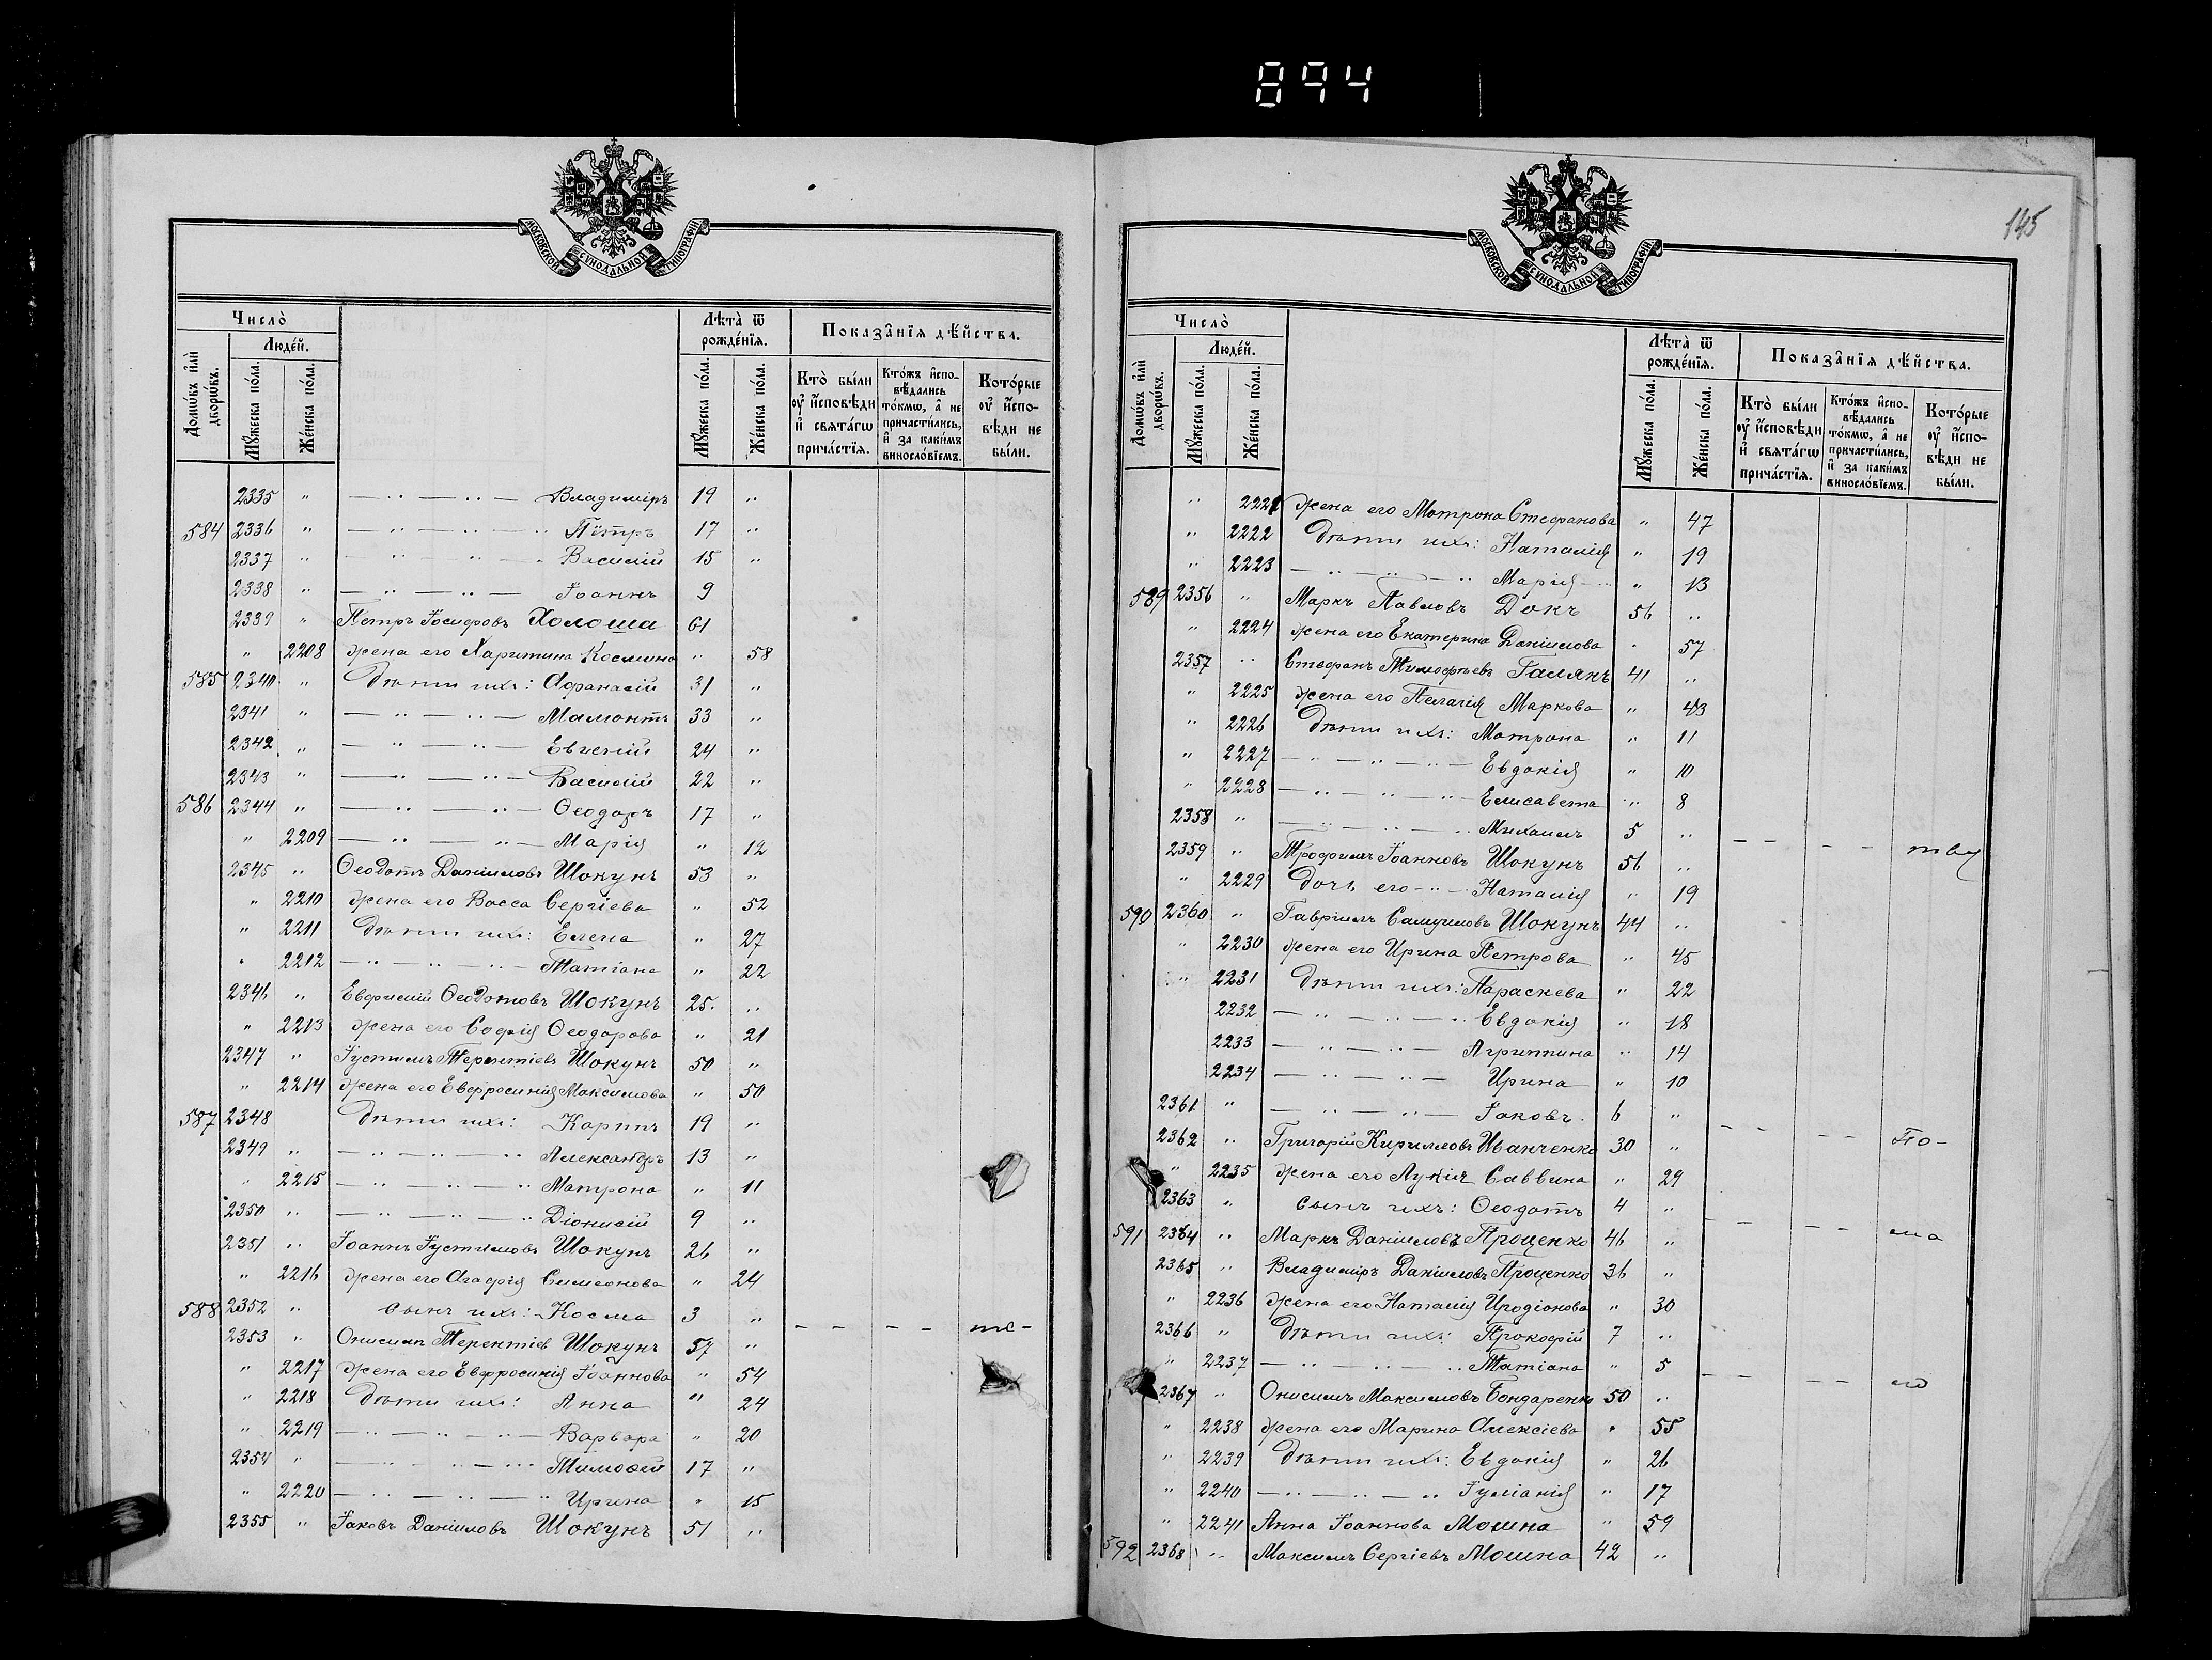 894
МОСКОВСКОЙ СѴНОДАЛЬНОЙ ТИПОГРАФІИ
Число̀
Лѣта̀ ѿ рожде́нїя.
Показа̂нїя дѣ́йства.
Домѡ́въ и҆лѝ дворѡ́въ.
Люде́й.
Мꙋ́жеска по́ла.
Же́нска по́ла.
Мꙋ́жеска по́ла.
Же́нска по́ла.
Кто̀ бы́ли ᲂу҆ и҆́сповѣди и҆ свѧта́гѡ прича́стїѧ.
Кто́жъ и҆спо-вѣ́дались то́кмѡ, а҆ не причасти́лись, и҆ за каки́мъ винослові́емъ.
Кото́рые ᲂу҆ и҆́спо-вѣди не бы́ли.
2335 " — " — " — Владиміръ 19 "
584 2336 " — " — " — " Пётръ 17 "
2337 " — " — " — " Василій 15 "
2338 " — " — " — Іоаннъ 9
2339 " Петръ Іосифовъ Холоша 61
" 2208 жена его Харитина Космина " 58
585 2340 " дѣти ихъ: Афанасій 31 "
2341 " — " — " — Мамонтъ 33 "
2342 " — " — " — Евгеній 24 "
2343 " — " — " — Василій 22 "
586 2344 " — " — " — Ѳеодоръ 17 "
" 2209 — " — " — Марія " 12
2345 " Ѳеодотъ Даніиловъ Шокунъ 53 "
" 2210 жена его Васса Сергіева " 52
" 2211 дѣти ихъ: Елена " 27
" 2212 — " — " — " — Татіана " 22
2346 " Евфимій Ѳеодотовъ Шокунъ 25. "
" 2213 жена его Софія Ѳеодорова " 21
2347 " Іустинъ Терентіевъ Шокунъ 50 "
" 2214 жена его Евфросинія Максимова " 50
587 2348 дѣти ихъ: Карпъ 19 "
2349 " — " — " — " Александръ 13 "
" 2215 — " — " — " Матрона " 11
2350 " — " — " — " Діонисій 9 "
2351 " Іоаннъ Іустиновъ Шокунъ 26 "
" 2216 жена его Агафія Симеонова " 24
588 2352 " сынъ ихъ: Косма 3 "
2353 " Онисимъ Терентіевъ Шокунъ 57 " — — — — те-
" 2217 жена его Евфросинія Іоаннова " 54
" 2218 дѣти ихъ: Анна " 24
" 2219 — " — " — " — Варвара " 20
2354 " — " — " — " Тимоѳей 17 "
" 2220 — " — " — " Ирина " 15
2355 " Іаковъ Даніиловъ Шокунъ 51 "
145
МОСКОВСКОЙ СѴНОДАЛЬНОЙ ТИПОГРАФІИ
Число̀
Лѣта̀ ѿ рожде́нїя.
Показа̂нїя дѣ́йства.
Домѡ́въ и҆лѝ дворѡ́въ.
Люде́й.
Мꙋ́жеска по́ла.
Же́нска по́ла.
Мꙋ́жеска по́ла.
Же́нска по́ла.
Кто̀ бы́ли ᲂу҆ и҆́сповѣди и҆ свѧта́гѡ прича́стїѧ.
Кто́жъ и҆спо-вѣ́дались то́кмѡ, а҆ не причасти́лись, и҆ за каки́мъ винослові́емъ.
Кото́рые ᲂу҆ и҆́спо-вѣди не бы́ли.
" 2221 жена его Матрона Стефанова " 47
" 2222 дѣти ихъ: Наталія " 19
" 2223 — " — " — " Марія " 13
589 2356 " Маркъ Павловъ Докъ 56 "
" 2224 жена его Екатерина Даніилова " 57
2357 " Стефанъ Тимофѣевъ Галянъ 41 "
" 2225 жена его Пелагія Маркова " 43
" 2226 дѣти ихъ: Матрона " 11
" 2227 — " — " — " — Евдокія " 10
" 2228 — " — " — " — Елисавета " 8
2358 " — " — " — " Михаилъ 5 "
2359 " Трофимъ Іоанновъ Шокунъ 56 " — — — —
" 2229 дочь его — " — Наталія " 19
590 2360 " Гавріилъ Самуиловъ Шокунъ 44 "
" 2230 жена его Ирина Петрова " 45
" 2231 дѣти ихъ: Параскева " 22
2232 — " — " — " Евдокія " 18
2233 — " — " — Агриппина " 14
2234 — " — " — Ирина " 10
2361 " — " — " — Іаковъ. 6 "
2362 " Григорій Кирилловъ Иванченко 30 " — — — — По-
" 2235 жена его Лукія Саввина " 29
2363 " сынъ ихъ: Ѳеодотъ 4 "
591 2364 " Маркъ Даніиловъ Проценко 46 " — — — — ла
2365 " Владиміръ Даніиловъ Проценко 36 "
" 2236 жена его Наталія Иродіонова " 30
2366 " дѣти ихъ: Прокофій 7 "
" 2237 — " — " — " Татіана " 5
2367 " Онисимъ Максимовъ Бондаренко 50 " — — — —
" 2238 жена его Марина Алексіева " 55
" 2239 дѣти ихъ: Евдокія " 26
" 2240 — " — " — " Іуліанія " 17
" 2241 Анна Іоаннова Мошна " 59
592 2368 " Максимъ Сергіевъ Мошна 42 "